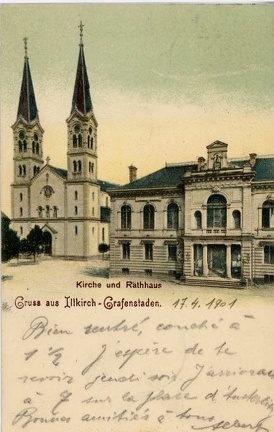 Kirche und Rathhaus
Gruss aus Illkirch-Grafenstaden. 17.4.1901
Bien rentré, couché à
1 ½ J'espère de te
revoir jeudi soir J'arriverai
à 7 sur la place d'Austerlitz
Bonnes amitiés à tous
Albert